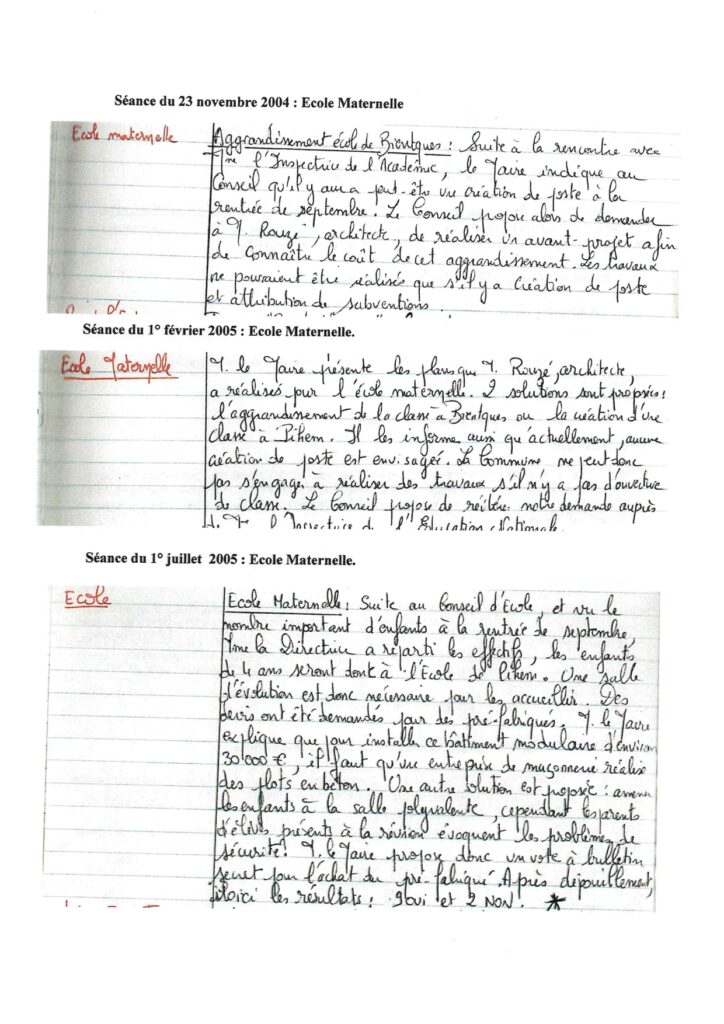 Séance du 23 novembre 2004 : Ecole Maternelle
Ecole maternelle
Aggrandissement école de Bientques : Suite à la rencontre avec
Me l'Inspectrice de l'Académie, le Maire indique au
Conseil qu'il y aura peut-être une création de poste à la
rentrée de septembre. Le Conseil propose alors de demander
à M. Rouzé, architecte, de réaliser un avant-projet afin
de connaître le coût de cet aggrandissement. Les travaux
ne pourraient être réalisés que s'il y a création de poste
et attribution de subventions.
Séance du 1° février 2005 : Ecole Maternelle.
Ecole Maternelle
M. le Maire présente les plans que M. Rouzé, architecte,
a réalisés pour l'école maternelle. 2 solutions sont proposées :
l'aggrandissement de la classe à Bientques ou la création d'une
classe à Pihem. Il les informe aussi qu'actuellement, aucune
création de poste est envisagée. La Commune ne peut donc
pas s'engager à réaliser des travaux s'il n'y a pas d'ouverture
de classe. Le Conseil propose de réitérer notre demande auprès
de Me l'Inspectrice de l'Education Nationale
Séance du 1° juillet 2005 : Ecole Maternelle.
Ecole
Ecole Maternelle : Suite au Conseil d'Ecole, et vu le
nombre important d'enfants à la rentrée de septembre,
Mme la Directrice a réparti les effectifs, les enfants
de 4 ans seront donc à l'Ecole de Pihem. Une salle
d'évolution est donc nécessaire pour les accueillir. Des
devis ont été demandés pour des pré-fabriqués. M. le Maire
explique que pour installer ce bâtiment modulaire d'environ
30 000 €, il faut qu'une entreprise de maçonnerie réalise
des plots en béton. Une autre solution est proposée : amener
les enfants à la salle polyvalente, cependant les parents
d'élèves présents à la réunion évoquent les problèmes de
sécurité ! M. le Maire propose donc un vote à bulletin
secret pour l'achat du pré-fabriqué. Après dépouillement,
voici les résultats : 9 oui et 2 NON. *